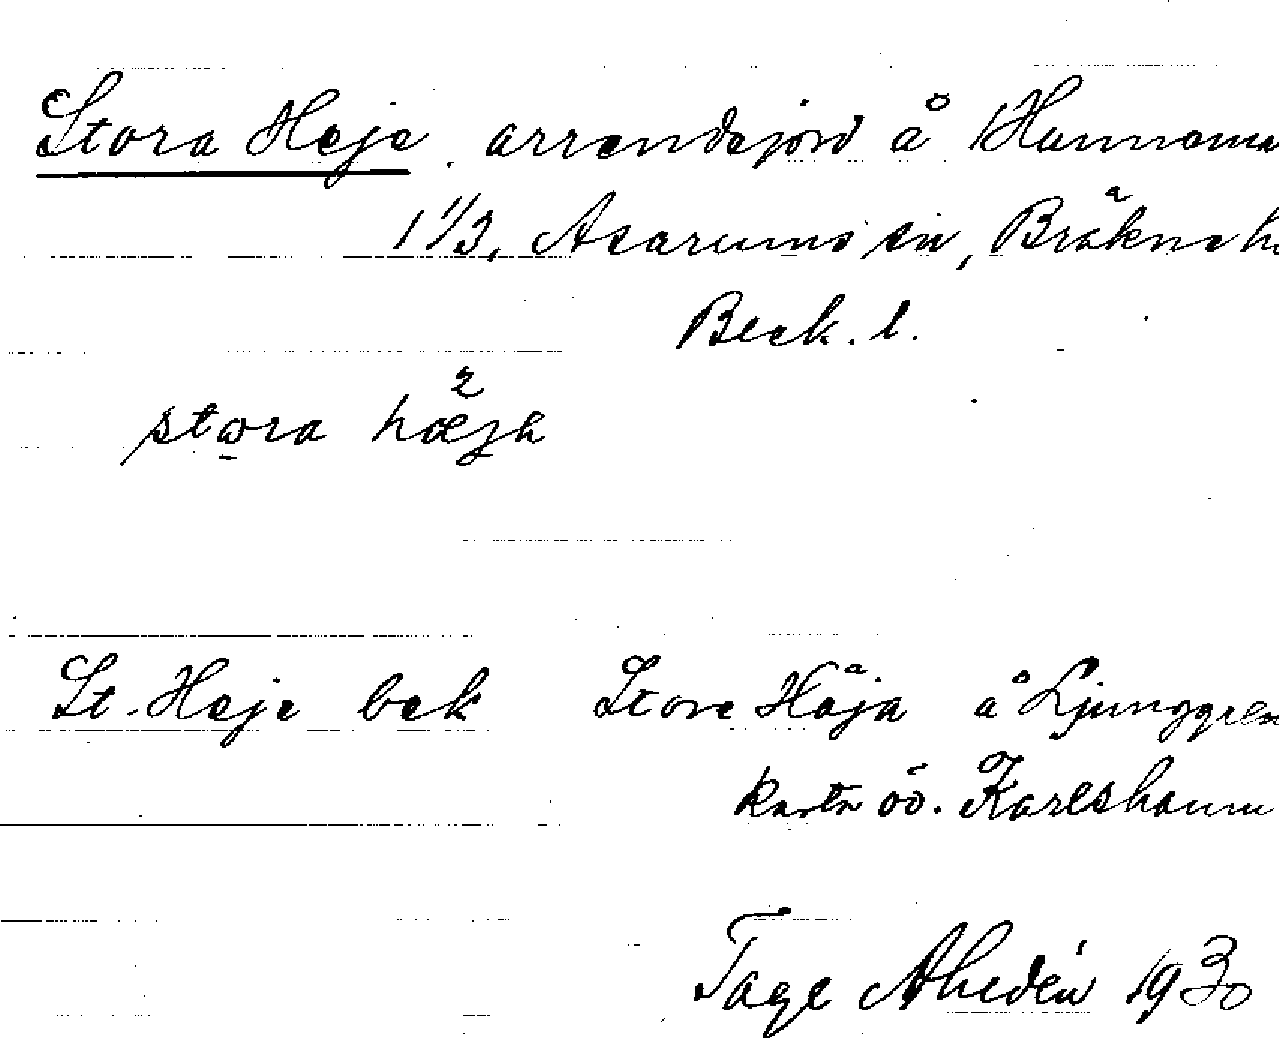 Stora Heje. arrendejord å Hunnema
1 1/3, Asarums sn, Bräkne h
Blek. l.
stora hæja
St. Heje bek Stora Häja å Ljunggren
karta öv. Karlshamn
Tage Ahedén 1930